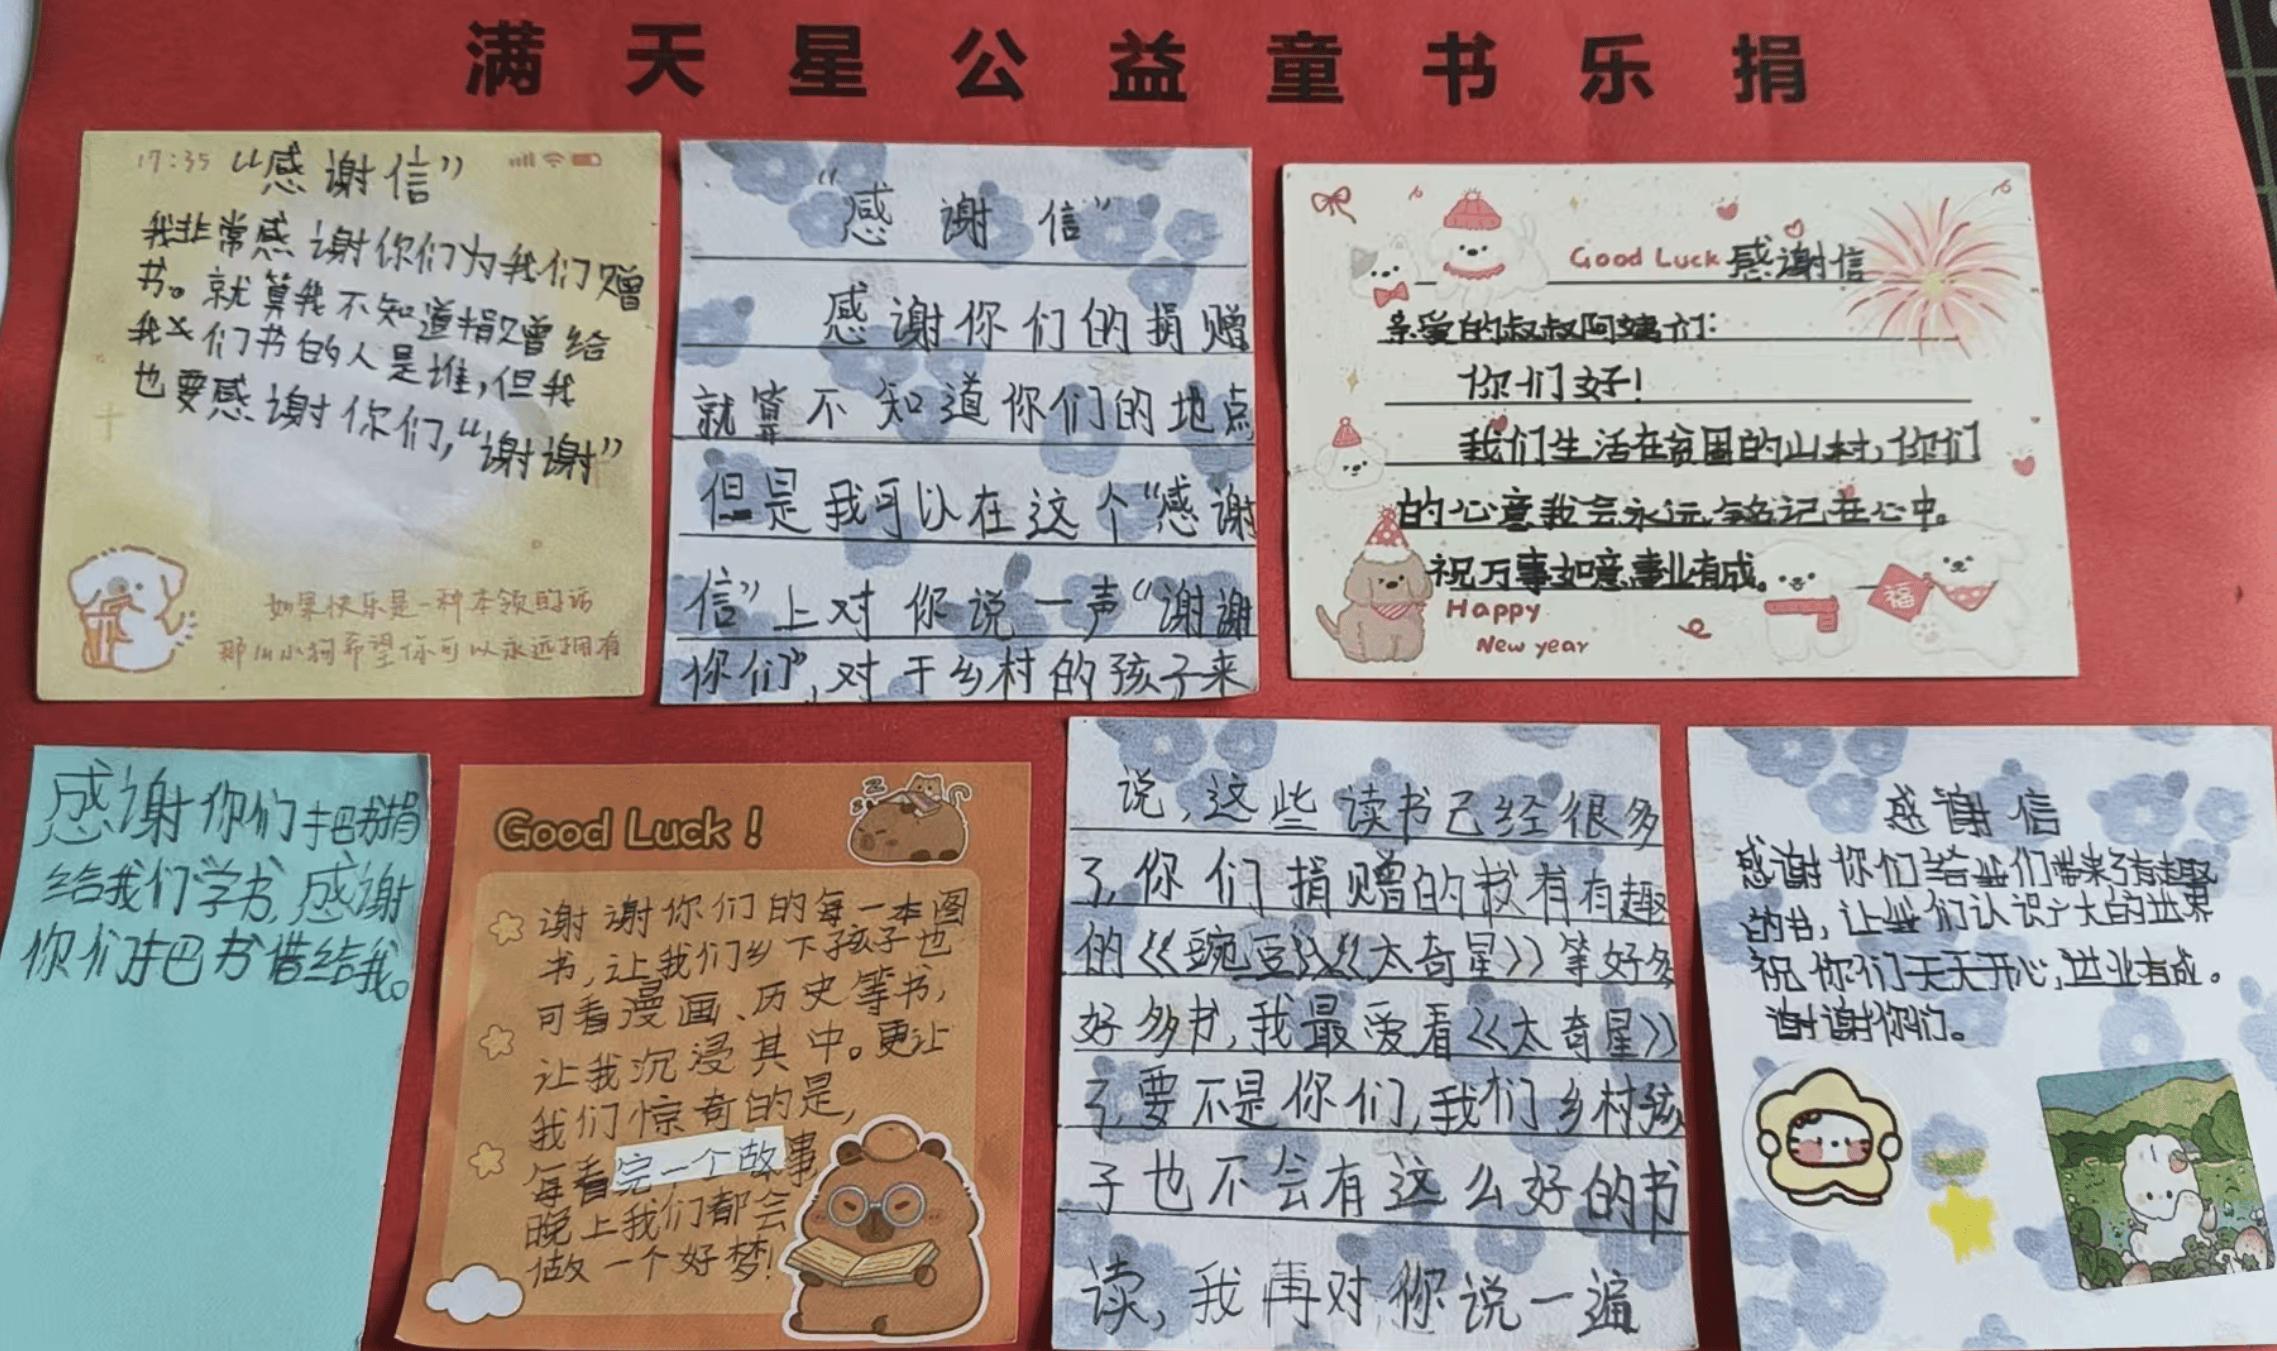 满天星公益童书乐捐
17:35
“感谢信”
我非常感谢你们为我们赠
书。就算我不知道捐赠给
我们书的人是谁,但我
也要感谢你们,“谢谢”
如果快乐是一种本领的话
那么小狗希望你可以永远拥有
“感谢信”
感谢你们的捐赠
就算不知道你们的地点
但是我可以在这个“感谢
信”上对你说一声“谢谢
你们”,对于乡村的孩子来
Good Luck
感谢信
亲爱的叔叔阿姨们:
你们好!
我们生活在贫困的山村,你们
的心意我会永远铭记在心中。
祝万事如意事业有成。
福
Happy
New year
感谢你们把书捐
给我们学书,感谢
你们把书借给我。
Good Luck!
谢谢你们的每一本图
书,让我们乡下孩子也
可看漫画、历史等书,
让我沉浸其中。更让
我们惊奇的是,
每看完一个故事
晚上我们都会
做一个好梦!
说,这些读书已经很多
了,你们捐赠的书有有趣
的《豌豆》《太奇星》等好多
好多书,我最爱看《太奇星》
了,要不是你们,我们乡村孩
子也不会有这么好的书
读,我再对你说一遍
感谢信
感谢你们给我们带来了有趣
的书,让我们认识广大的世界
祝你们天天开心,事业有成。
谢谢你们。